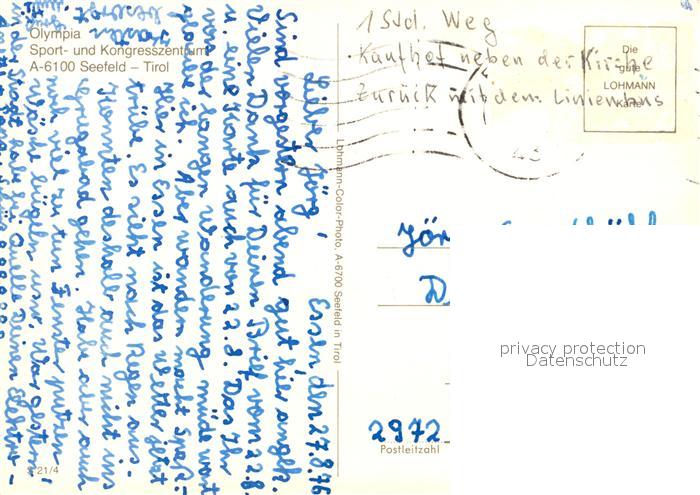 Olympia
Sport- und Kongresszentrum
A-6100 Seefeld – Tirol
1 Std. Weg
Kaufhof neben der Kirche
Zurück mit dem Linienbus
Die
gute
LOHMANN
Karte
Essen, den 27.8.76
Lieber Jörg,
Sind vorgestern abend gut hier angek.
Vielen Dank für Deinen Brief vom 22.8.
u. eine Karte auch von 22.8. Das Ihr
von der langen Wanderung müde wart
glaube ich. Aber wandern macht Spaß.
Hier in Essen ist das Wetter jetzt
trübe. Es sieht nach Regen aus.
Konnten deshalb auch nicht ins
gehen. Habe aber auch
viel zu tun Fenster putzen
Wäsche bügeln usw. War gestern
in der Stadt habe für Deinen
Lohmann-Color-Photo, A-6700 Seefeld in Tirol
Jör
D
2972
Postleitzahl
S 21/4
privacy protection
Datenschutz